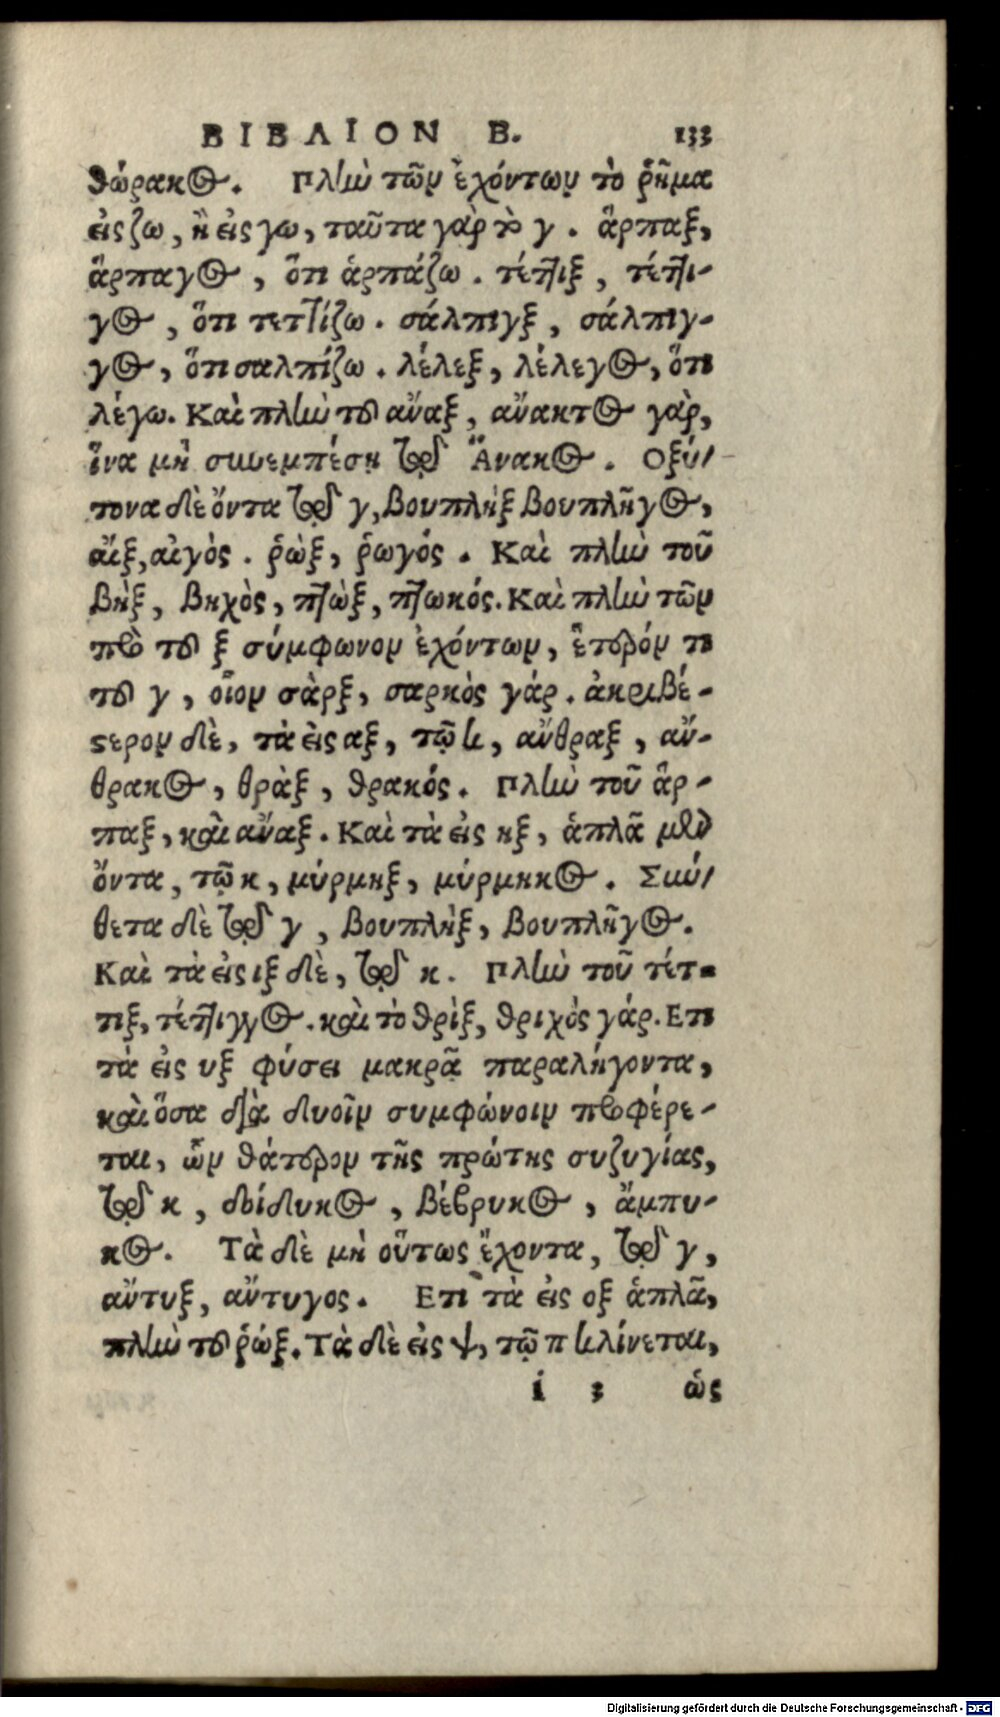 ΒΙΒΛΙΟΝ Β. 133
θώρακος. Πλὴν τῶν ἐχόντων τὸ ῥῆμα
εἰς ζω, ἢ εἰς γω, ταῦτα γὰρ τὸ γ. ἅρπαξ,
ἅρπαγος, ὅτι ἁρπάζω. τέττιξ, τέττι-
γος, ὅτι τεττίζω. σάλπιγξ, σάλπιγ-
γος, ὅτι σαλπίζω. λέλεξ, λέλεγος, ὅτι
λέγω. Καὶ πλὴν τοῦ ἄναξ, ἄνακτος γὰρ,
ἵνα μὴ συνεμπέσῃ τῷ Ἄνακος. Οξύ-
τονα δὲ ὄντα τῷ γ, βουπλὴξ βουπλῆγος,
αἴξ, αἰγὸς. ῥὼξ, ῥωγός. Καὶ πλὴν τοῦ
βὴξ, βηχὸς, πτὼξ, πτωκός. Καὶ πλὴν τῶν
πρὸ τοῦ ξ σύμφωνον ἐχόντων, ἕτερόν τι
τοῦ γ, οἷον σὰρξ, σαρκὸς γάρ. ἀκριβέ-
στερον δὲ, τὰ εἰς αξ, τῷ κ, ἄνθραξ, ἄν-
θρακος, θρὰξ, θρακός. Πλὴν τοῦ ἅρ-
παξ, καὶ ἄναξ. Καὶ τὰ εἰς ηξ, ἁπλᾶ μὲν
ὄντα, τῷ κ, μύρμηξ, μύρμηκος. Σύν-
θετα δὲ τῷ γ, βουπλὴξ, βουπλῆγος.
Καὶ τὰ εἰς ιξ δὲ, τῷ κ. Πλὴν τοῦ τέτ-
τιξ, τέττιγγος. καὶ τὸ θρὶξ, θριχὸς γάρ. Ετι
τὰ εἰς υξ φύσει μακρᾷ παραλήγοντα,
καὶ ὅσα διὰ δυοῖν συμφώνοιν προφέρε-
ται, ὧν θάτερον τῆς πρώτης συζυγίας,
τῷ κ, δοίδυκος, βέβρυκος, ἄμπυ-
κος. Τὰ δὲ μὴ οὕτως ἔχοντα, τῷ γ,
ἄντυξ, ἄντυγος. Ετι τὰ εἰς οξ ἁπλᾶ,
πλὴν τοῦ ῥώξ. Τὰ δὲ εἰς ψ, τῷ π κλίνεται,
i 3 ὡς
Digitalisierung gefördert durch die Deutsche Forschungsgemeinschaft - DFG